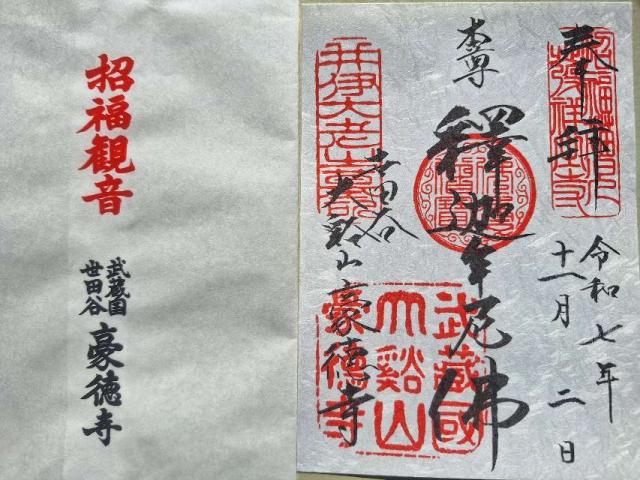 招福観音
武蔵国
世田谷
豪徳寺
奉拝
令和七年
十一月二日
本尊
釋迦牟尼佛
世田谷
大谿山豪徳寺
井伊大老山墓所
武蔵國
大谿山
豪徳寺